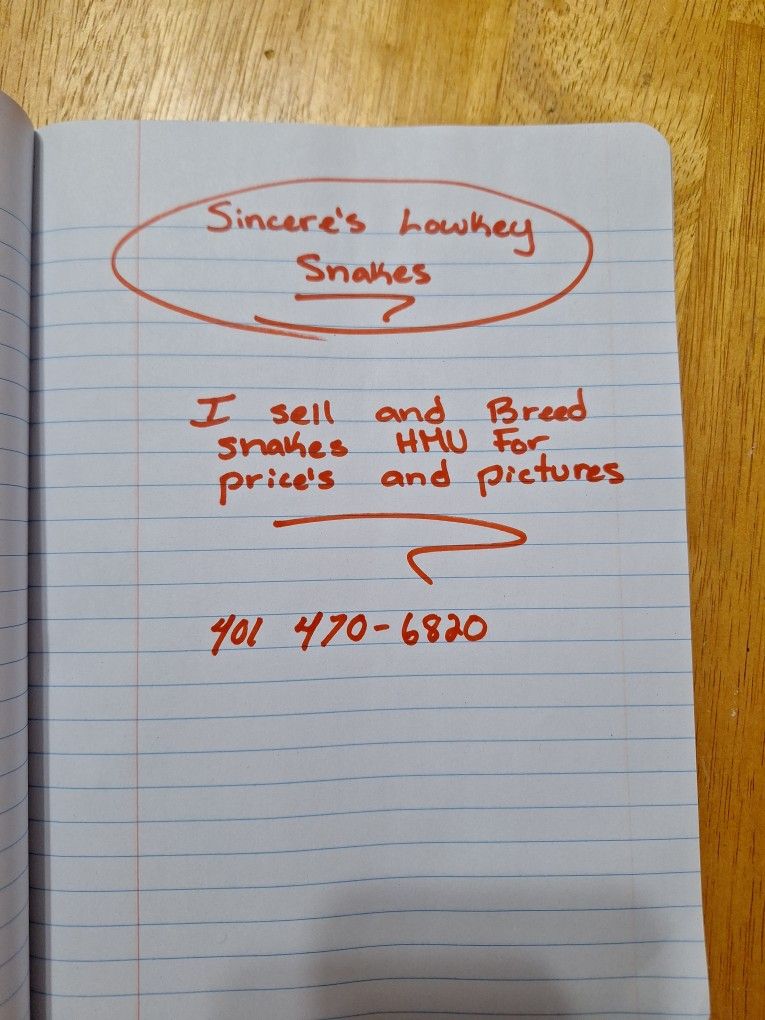 Sincere's Lowkey
Snakes
I sell and Breed
snakes HMU For
price's and pictures
401 470-6820